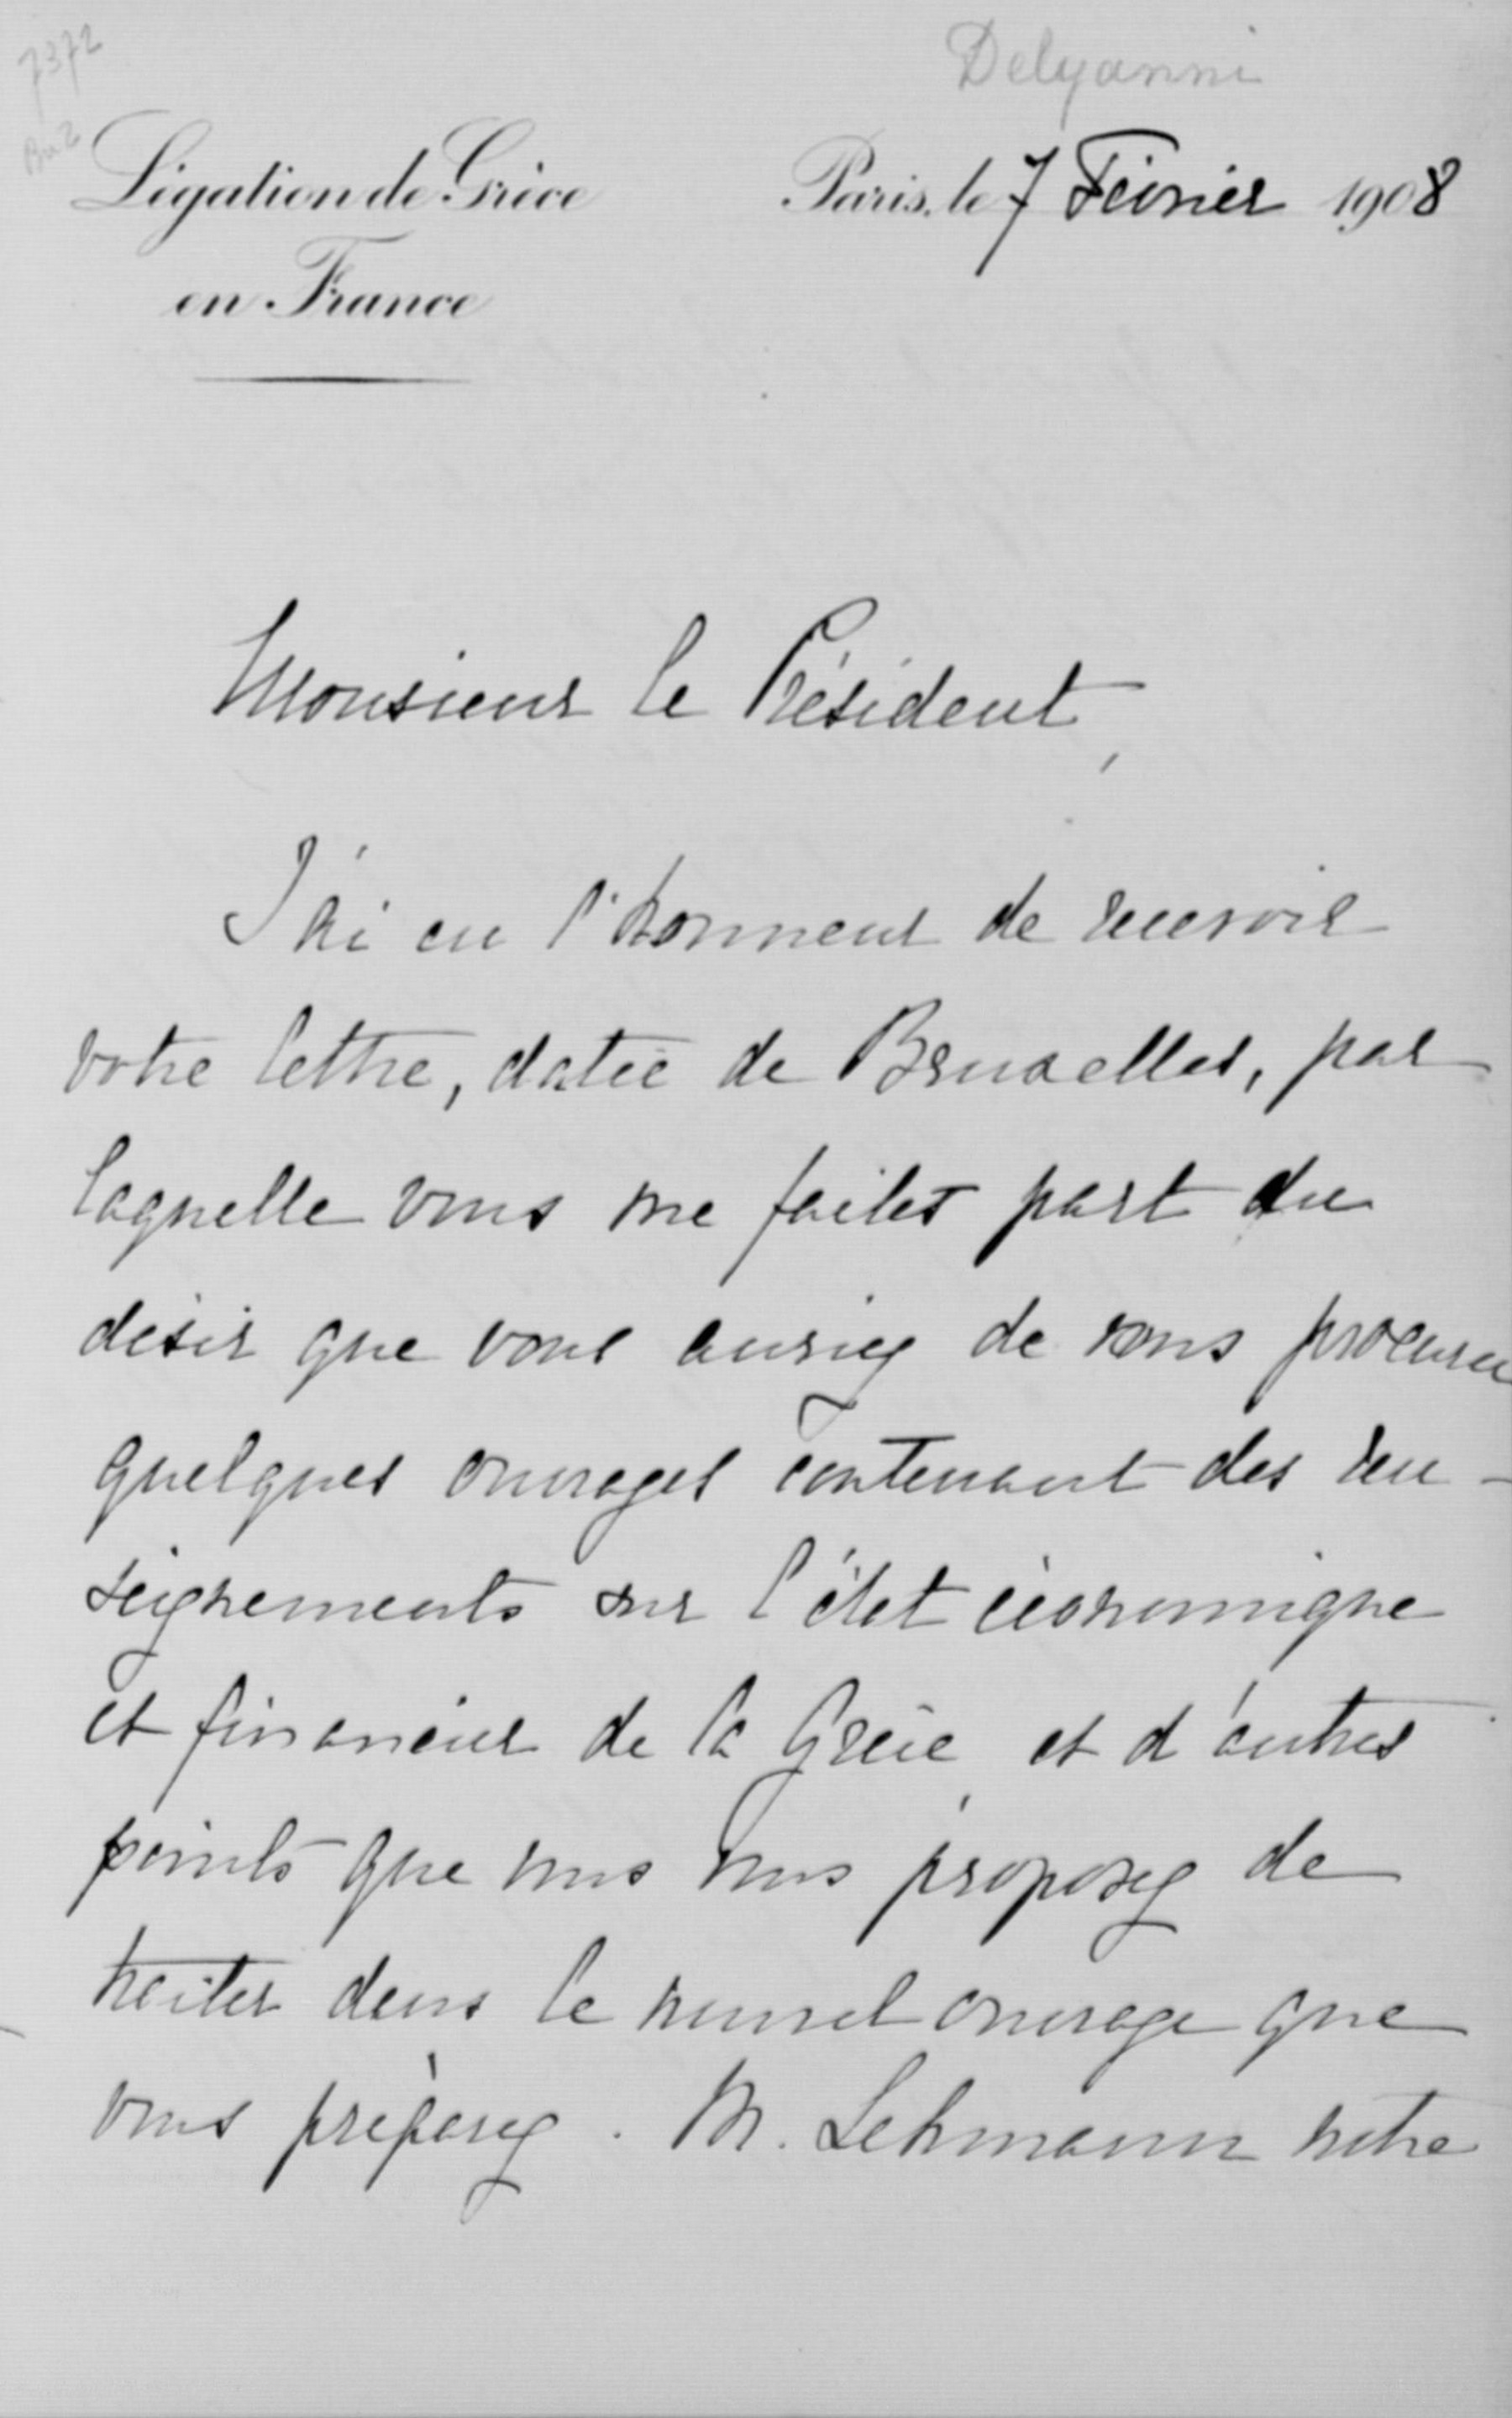 7372
Delyanni
Légation de Grèce
Paris, le 7 Février 1908
en France
Monsieur le Président,
J'ai eu l'honneur de recevoir
votre lettre, datée de Bruxelles, par
laquelle vous me faites part du
désir que vous auriez de vous procurer
quelques ouvrages contenant des ren-
seignements sur l'état économique
et financier de la Grèce, et d'autres
points que vous vous proposez de
traiter dans le nouvel ouvrage que
vous préparez. M. Lehmann notre